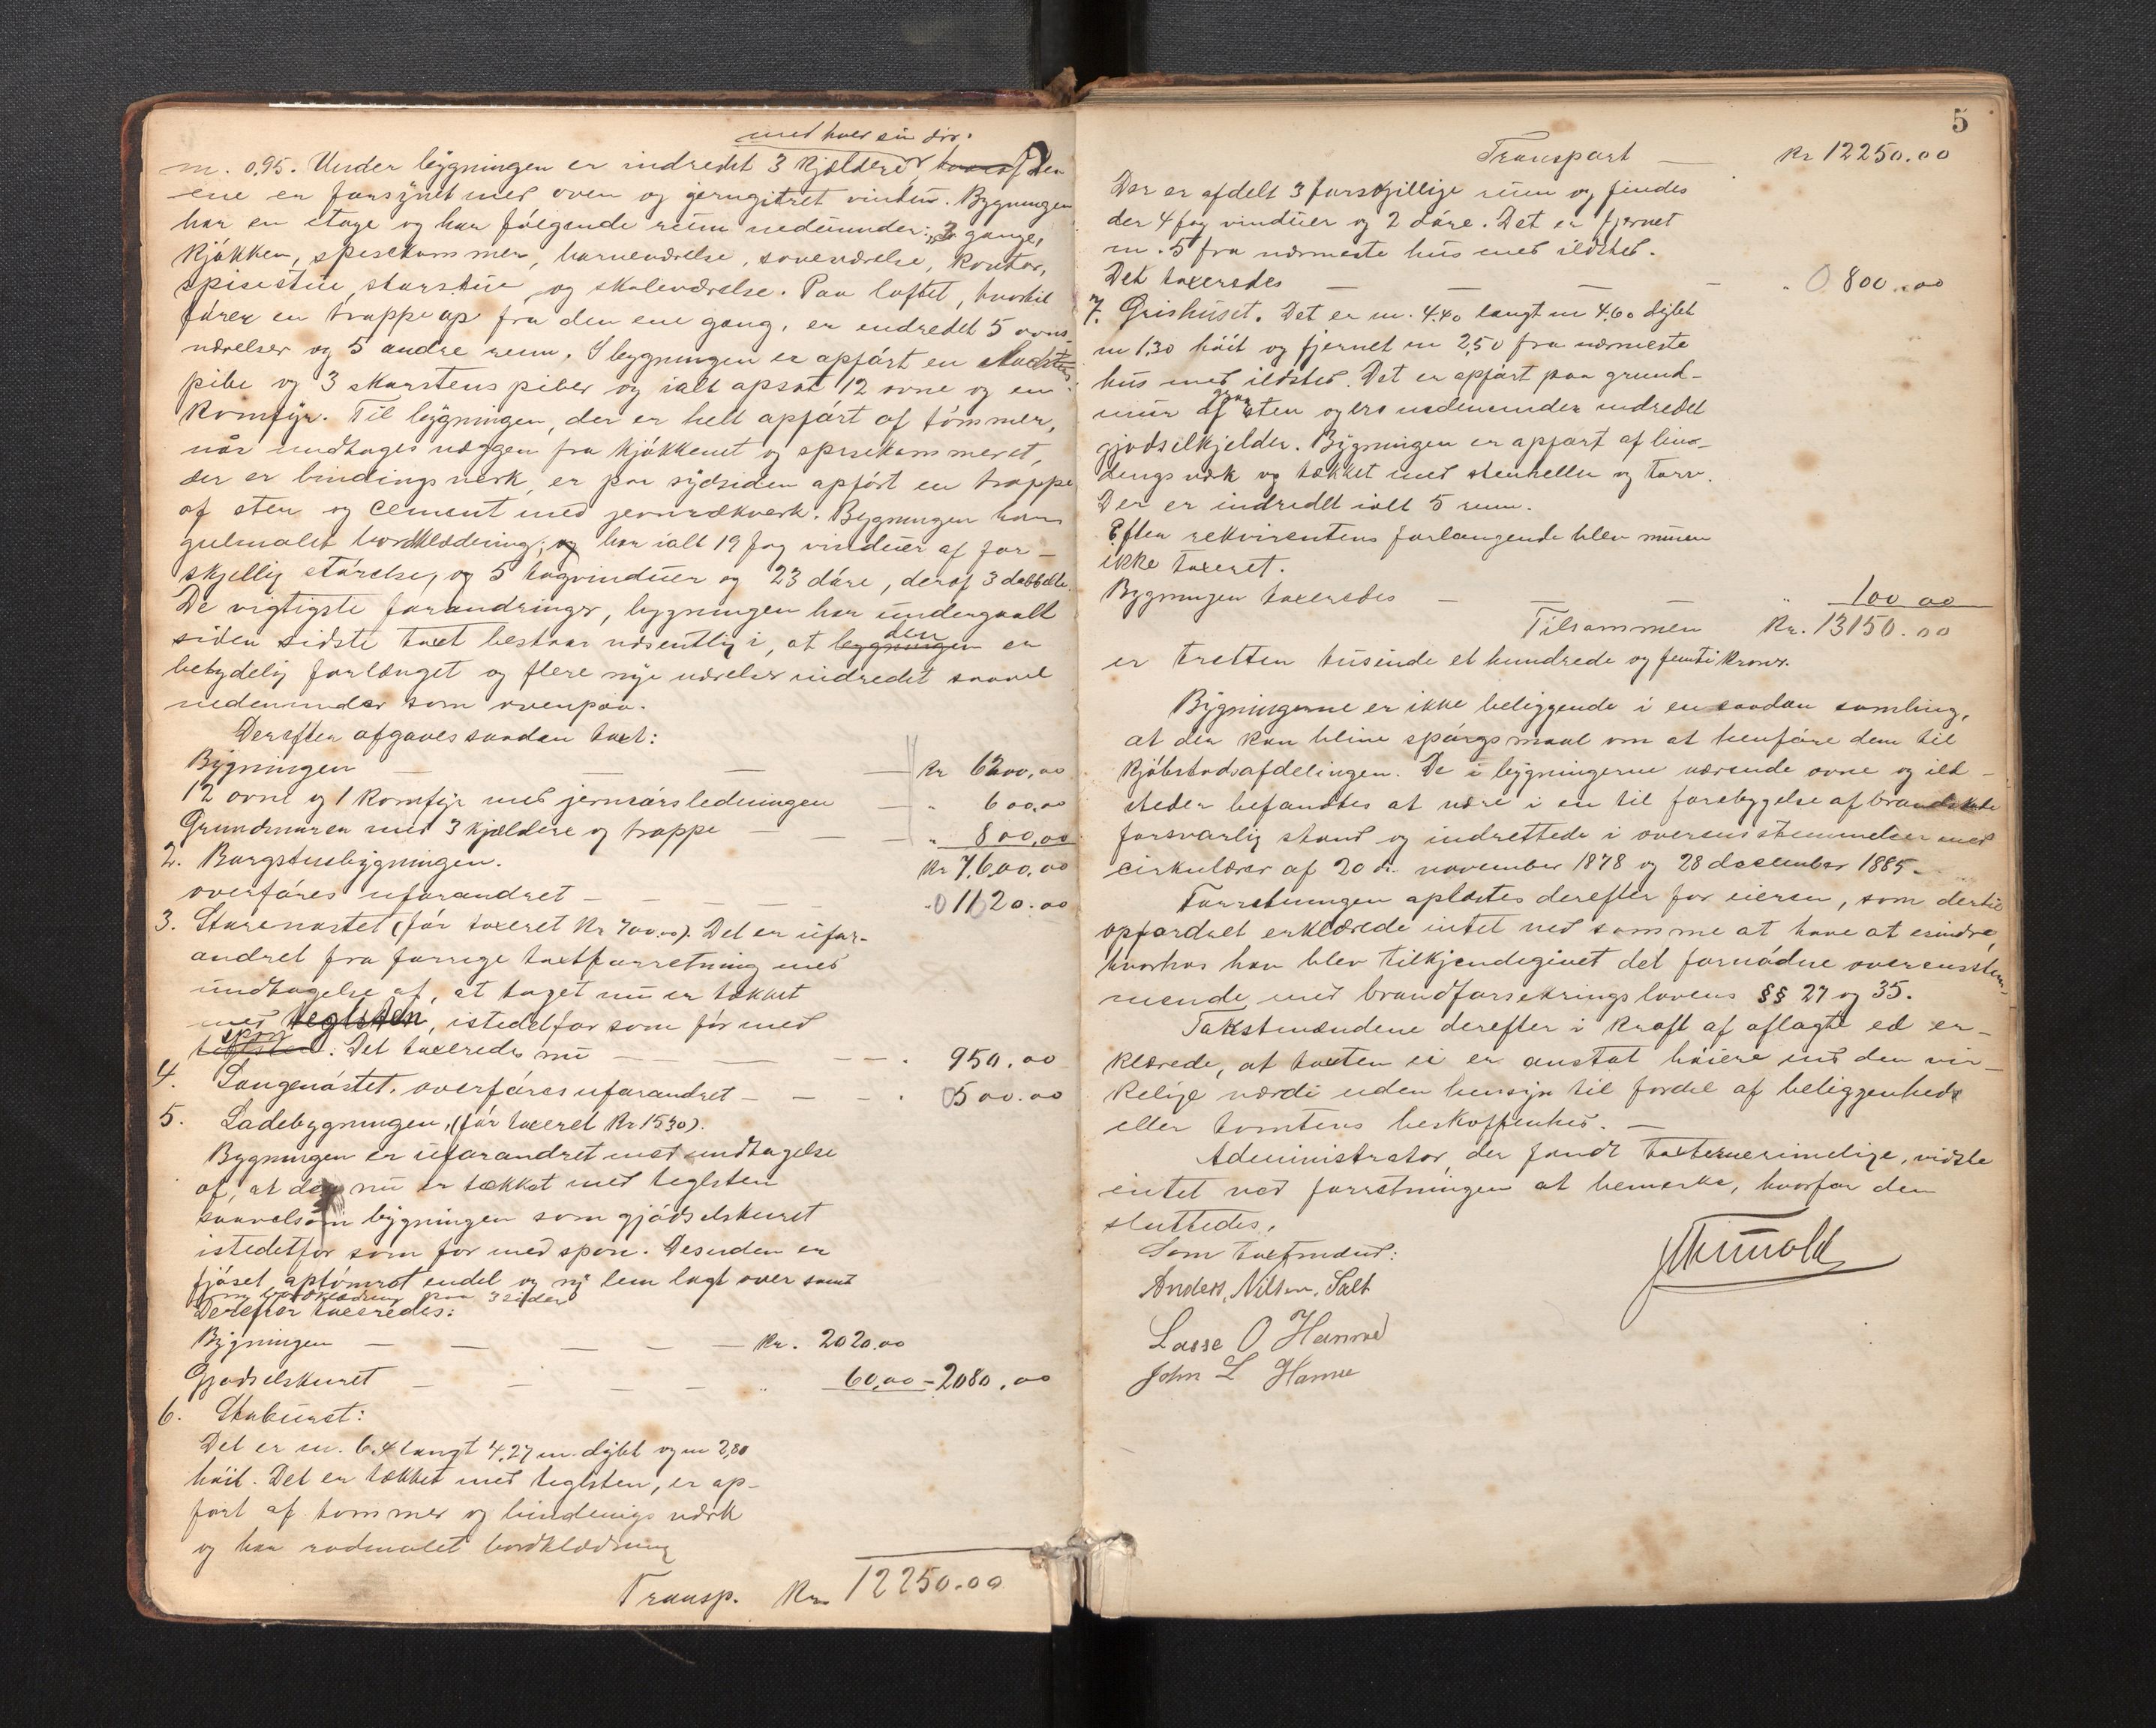 med hver sin dør.
m. 0,95. Under bÿgningen er indredet 3 Kjældere, hvoraf den
ene er forsÿnet med oven og jerngitret vindue. Bygningen
har en etage og har følgende rum nedenunder: 2 gange,
Kjøkken, spisekammer, barneværelse, soveværelse, Kontor,
spisestue, storstue og skoleværelse. Paa loftet, hvortil
fører en trappe op fra den ene gang, er indredet 5 ovns-
værelser og 5 andre rum. I bygningen er opført en
pibe og 3 skorstenspiber og ialt opsat 12 ovne og en
Komfÿr. Til bÿgningen, der er helt opført af tømmer,
når undtages væggen fra kjøkkenet og spisekammeret,
der er bindingsverk, er paa sÿdsiden opført en trappe
af sten og Cement med jernrækverk. Bygningen har
gulmalet bordklædning; og har ialt 19 fag vinduer af for-
skjellig størelse, og 5 tagvinduer og 23 døre, deraf 3 dobbelte.
De vigtigste forandringer, bygningen har undergaat
siden sidste taxt bestaar væsentlig i, at bygningen den er
betydelig forlænget og flere nye værelser indredet saavel
nedenunder som ovenpaa.
Derefter afgaves saadan taxt:
Bÿgningen — — — Kr 6200,00
12 ovne og 1 Komfÿr med jernrørsledningen — " 600,00
Grundmuren med 3 kjældere og trappe — — " 800,00
Kr 7,600,00
2. Borgstuebÿgningen.
overføres uforandret — — — — 1120.00
3. Storenøstet (før taxeret Kr 700.00). Det er ufor-
andret fra forrige taxtforretning med
undtagelse af, at taget nu er tækket
med teglsten, istedetfor som før med
spon teglsten: Det taxeredes nu — — — — . 950.00
4. Langenøstet. overføres uforandret — — — . 500.00
5. Ladebygningen, (før taxeret Kr 1530).
Bygningen er uforandret med undtagelse
af, at den nu er tækket med teglsten
saavelsom bÿgningen som gjødselskuret
istedetfor som før med spon. Desuden er
fjøset optømret endel og nÿ lem lagt over samt
bordklædning paa 3 sider
Derefter taxeredes:
Bÿgningen — — — — — Kr. 2020.00
Gjødselskuret — — — — " 60,00 – 2080,00
6. Staburet:
Det er m. 6.4 langt 4,27 m. dÿbt og m 2,80
høit. Det er tækket med teglsten, er op-
ført af tømmer og bindingsværk
og har rødmalet bordklædning
Transp. Kr. 12250.00
5
Transport — Kr 12250.00
Der er afdelt 3 forskjillige rum og findes
der 4 fag vinduer og 2 døre. Det er fjernet
m. 5 fra nærmeste hus med ildsted.
Det taxeredes — — — — " 800.00
7. Grishuset. Det er m. 4.40 langt m 4.60 dÿbt
m 1.30 høit og fjernet m 2,50 fra nærmeste
hus med ildsted. Det er opført paa grund-
mur af graa sten og er nedenunder indredet
gjødselkjelder. Bÿgningen er opført af bin-
dingsværk og tækket med stenheller og torv.
Der er indredet ialt 5 rum.
Efter rekvirentens forlangende blev muren
ikke taxeret.
Bygningen taxeredes — — — " 100 00
Tilsammen Kr. 13150.00
er tretten tusinde et hundrede og femti Kroner.
Bÿgningerne er ikke beliggende i en saadan samling,
at der kan blive spørgsmaal om at henføre dem til
Kjøbstadsafdelingen. De i bÿgningerne værende ovne og ild-
steder befandtes at være i en til forebyggelse af brandskade
forsvarlig stand og indrettede i overensstemmelse med
cirkulærer af 20 de. november 1878 og 28 december 1885.
Forretningen oplæstes derefter for eieren, som dertil
opfordret erklærede intet ved samme at have at erindre,
hvorhos han blev tilkjendegivet det fornødne overensstem-
mende med brandforsikringslovens §§ 27 og 35.
Takstmændene derefter i Kraft af aflagte ed er-
klærede, at taxten ei er ansat høiere end den vir-
Kelige værdi uden hensyn til fordel af beliggenheds
eller tomtens beskaffenhed. —
Administrator, der fandt taxterne rimelige, vidste
intet ved forretningen at bemerke, hvorfor den
sluttedes.
Som taxtmænd:
Anders, Nilsen, Salt
Lasse O Hamre
John L Hamre